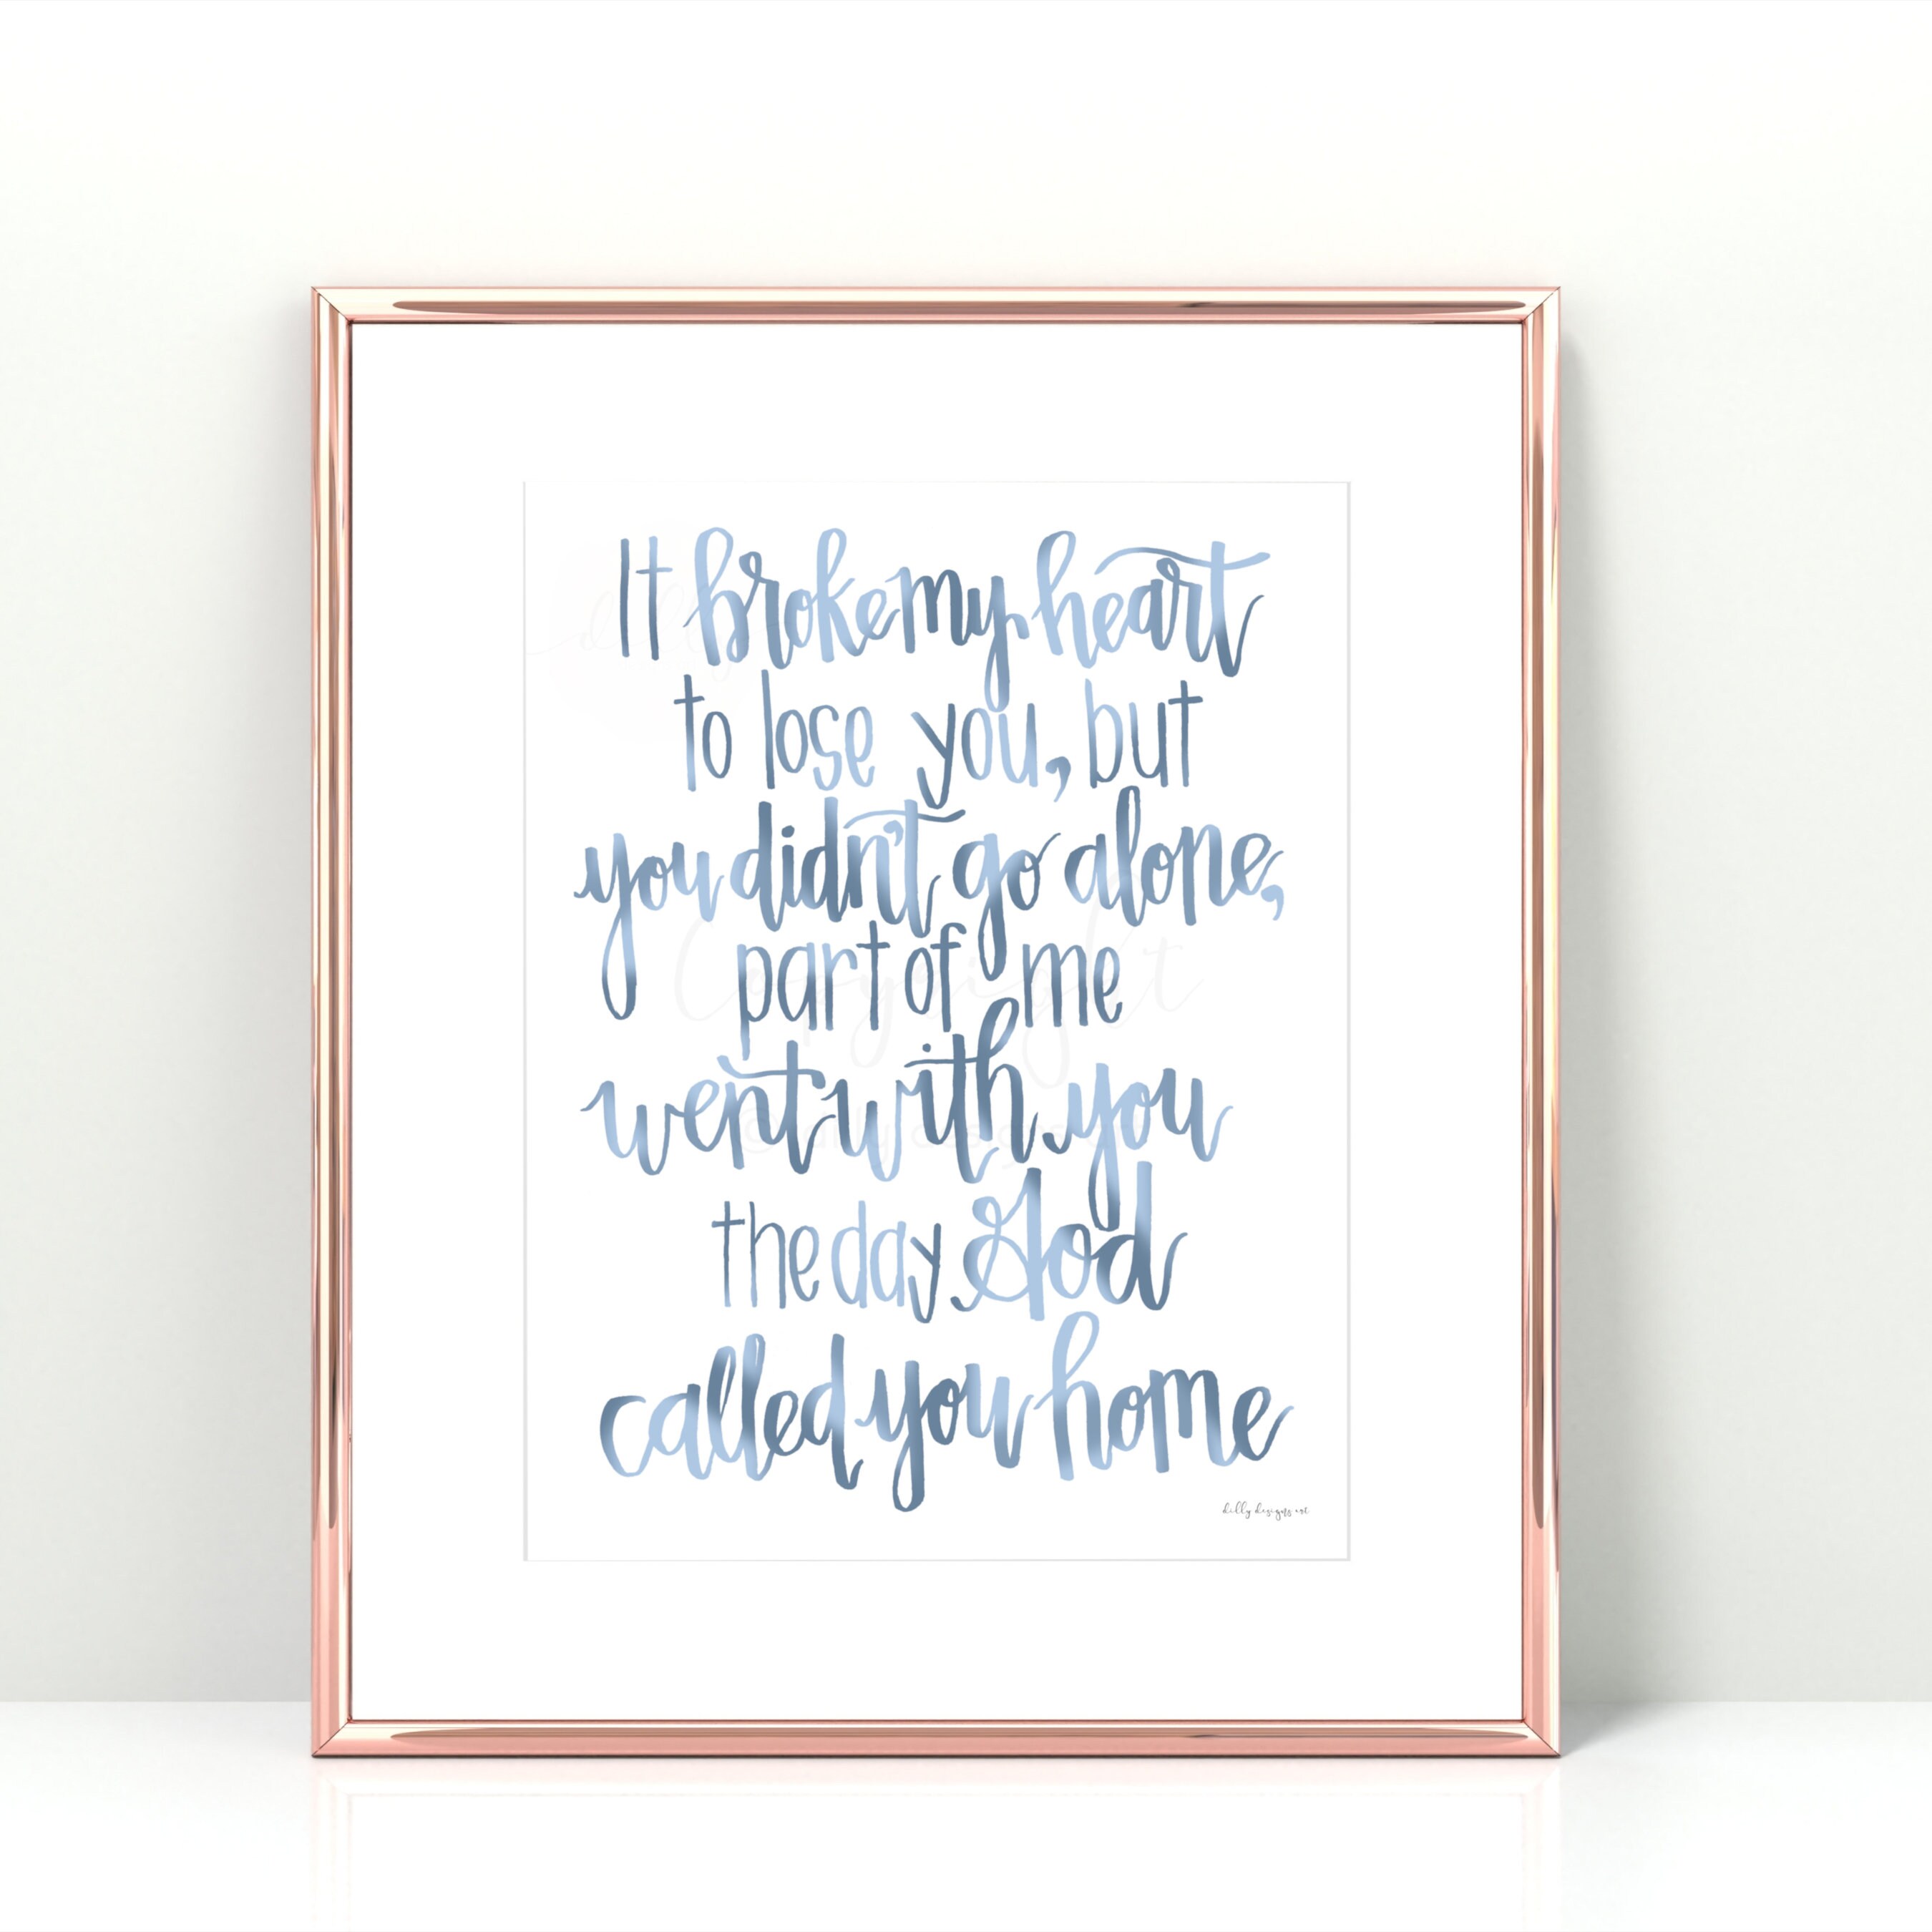 It broke my heart
to lose you, but
you didn't go alone,
part of me
went with you
the day God
called you home
dilly designs art
Copyright